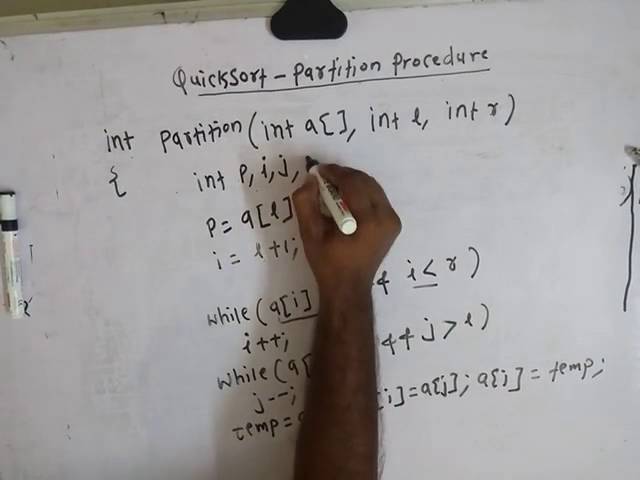 QuickSort - Partition Procedure
int Partition(int a[], int l, int r)
{ int P, i, j,
P = a[l]
i = l+1;
while(a[i] && i ≤ r)
i++;
while(a[ && j > l)
j--;
temp= [i]=a[j]; a[j] = temp;